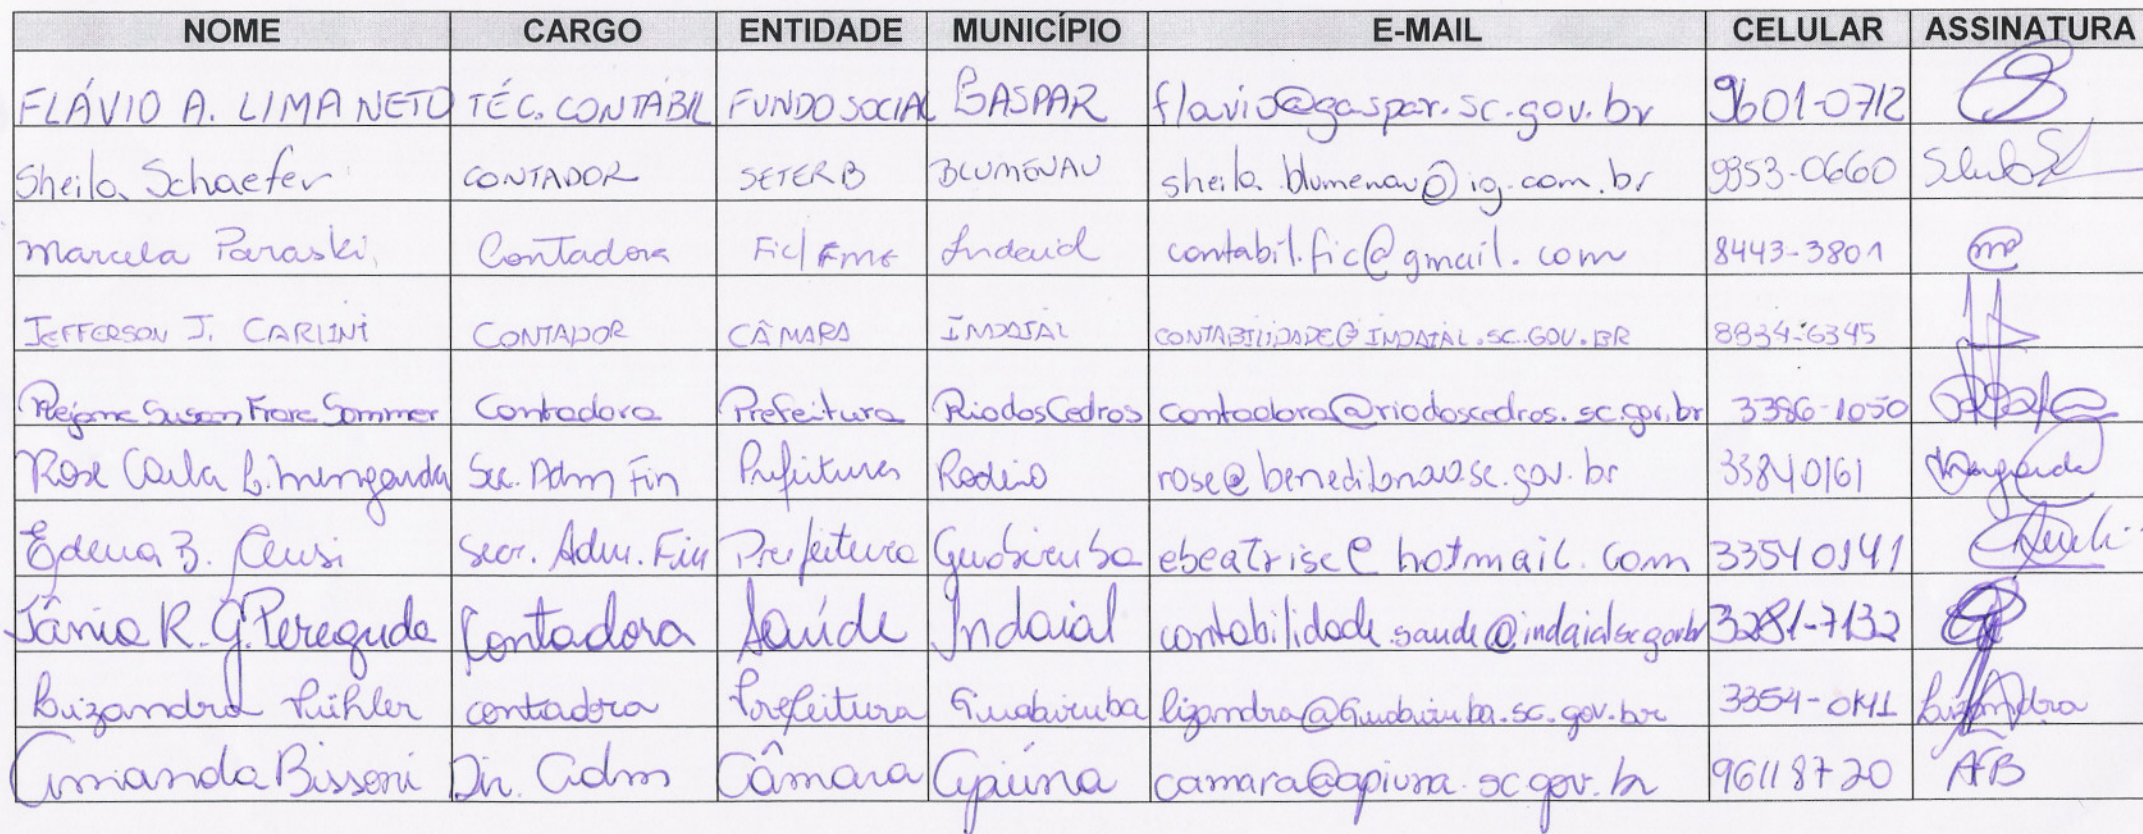 NOME CARGO ENTIDADE MUNICÍPIO E-MAIL CELULAR ASSINATURA
FLÁVIO A. LIMA NETO TÉC. CONTÁBIL FUNDO SOCIAL GASPAR flavio@gaspar.sc.gov.br 9601-0712
Sheila Schaefer CONTADOR SETERB BLUMENAU sheila.blumenau@ig.com.br 9953-0660
Marcela Paraski Contadora Fic/FME Indaial contabil.fic@gmail.com 8443-3801
JEFFERSON J. CARLINI CONTADOR CÂMARA INDAIAL CONTABILIDADE@INDAIAL.SC.GOV.BR 8834-6345
Rejane Susan Frare Sommer Contadora Prefeitura Rio dos Cedros contadora@riodoscedros.sc.gov.br 3386-1050
Rose Carla B. Mengarda Sec. Adm Fin Prefeitura Rodeio rose@beneditonovo.sc.gov.br 33840161
Edena B. Censi Secr. Adm. Fin Prefeitura Guabiruba ebeatrise@hotmail.com 33540141
Tânia R. G. Pereguda Contadora Saúde Indaial contabilidade.saude@indaial.sc.gov.br 3281-7132
Lizandra Kühler contadora Prefeitura Guabiruba lizandra@Guabiruba.sc.gov.br 3354-0141 Lizandra
Amanda Bissoni Dir. Adm Câmara Apiúna camara@apiuna.sc.gov.br 96118720 AFB